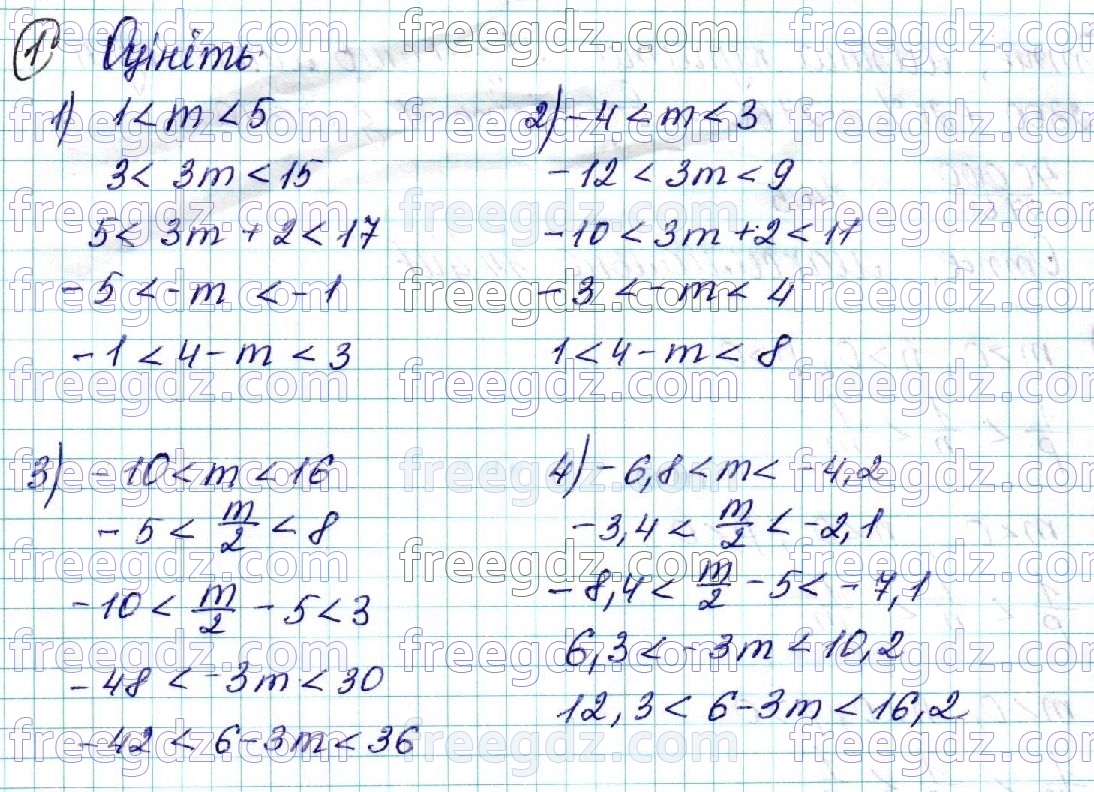 ① Оцініть:
1) 1 < m < 5
3 < 3m < 15
5 < 3m + 2 < 17
-5 < -m < -1
-1 < 4 - m < 3
2) -4 < m < 3
-12 < 3m < 9
-10 < 3m + 2 < 11
-3 < -m < 4
1 < 4 - m < 8
3) -10 < m < 16
-5 < m/2 < 8
-10 < m/2 - 5 < 3
-48 < -3m < 30
-42 < 6 - 3m < 36
4) -6,8 < m < -4,2
-3,4 < m/2 < -2,1
-8,4 < m/2 - 5 < -7,1
6,3 < -3m < 10,2
12,3 < 6 - 3m < 16,2
freegdz.com